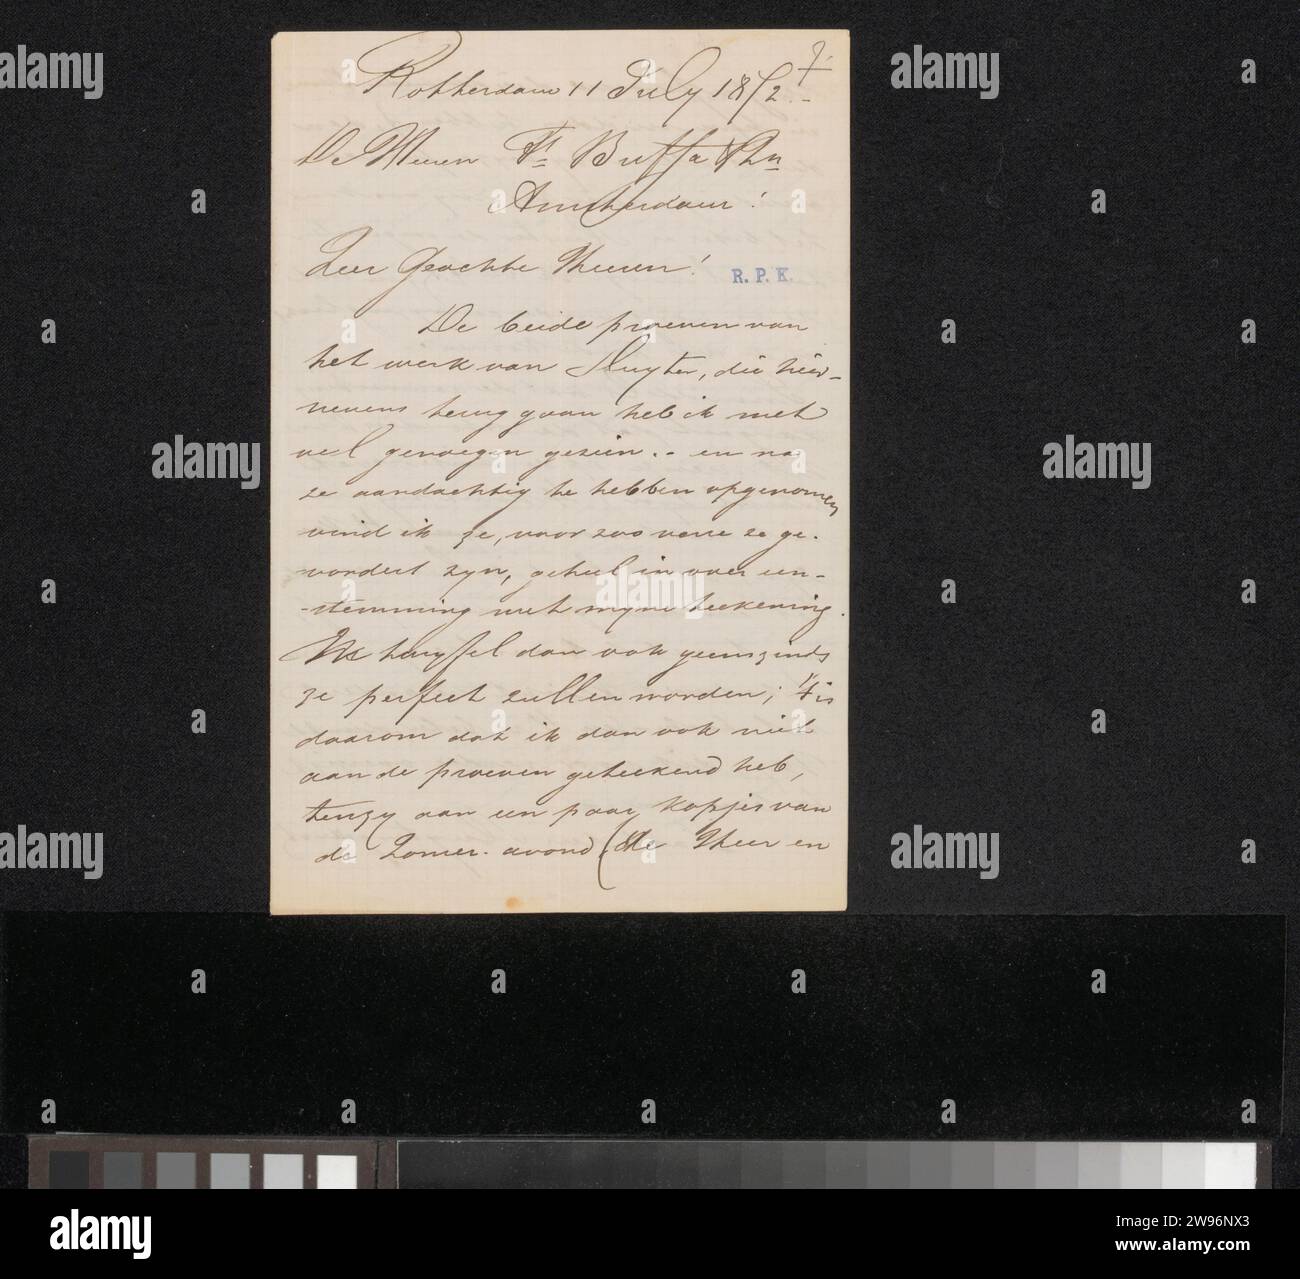 Rotterdam 11 July 1872.-
De Heeren Fs Buffa & Zn
Amsterdam!
Zeer Geachte Heeren!
R. P. K.
De beide proeven van
het werk van Sluyter, die hier-
nevens terug gaan heb ik met
veel genoegen gezien.- en na
ze aandachtig te hebben opgenomen
vind ik ze, voor zoo verre ze ge-
vordert zyn, geheel in over een-
-stemming met myne teekening.
Ik twyffel dan ook geenszinds
ze perfect zullen worden; 't is
daarom dat ik dan ook niet
aan de proeven geteekend heb,
tenzy aan een paar kopjes van
de Zomer-avond (de Heer en
alamy
Image ID: 2W96NX3
www.alamy.com